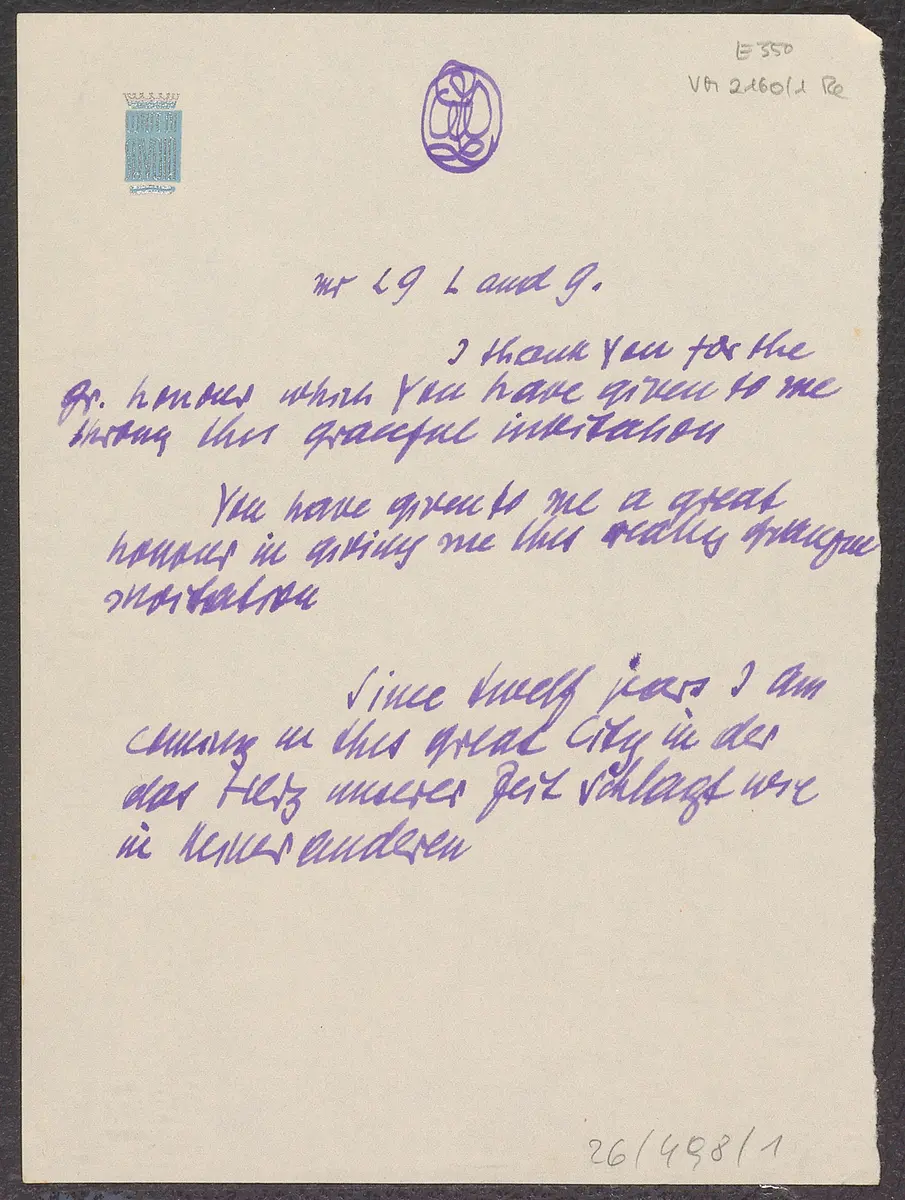 E 350
VA 2160/1 Re
mr L G L and G.
I thank You for the
gr. honour which You have given to me
throug this graceful invitation
You have given to me a great
honour in giving me this really
invitation
Since twelf jears I am
coming in this great City in der
das Herz unserer Zeit schlagt wie
in keiner anderen
26/498/1